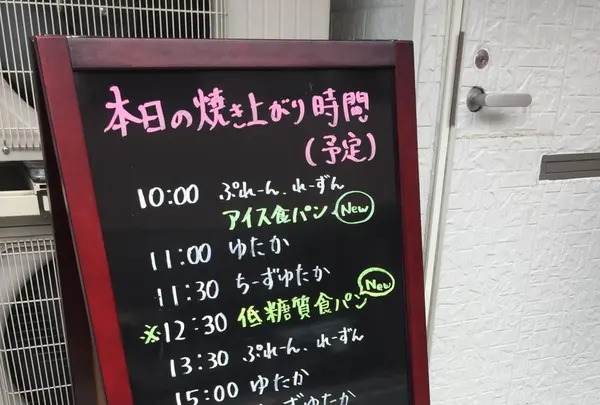 本日の焼き上がり時間
(予定)
10:00 ぷれーん、れーずん
アイス食パン New
11:00 ゆたか
11:30 ちーずゆたか
New
※12:30 低糖質食パン
13:30 ぷれーん、れーずん
15:00 ゆたか
ずゆたか